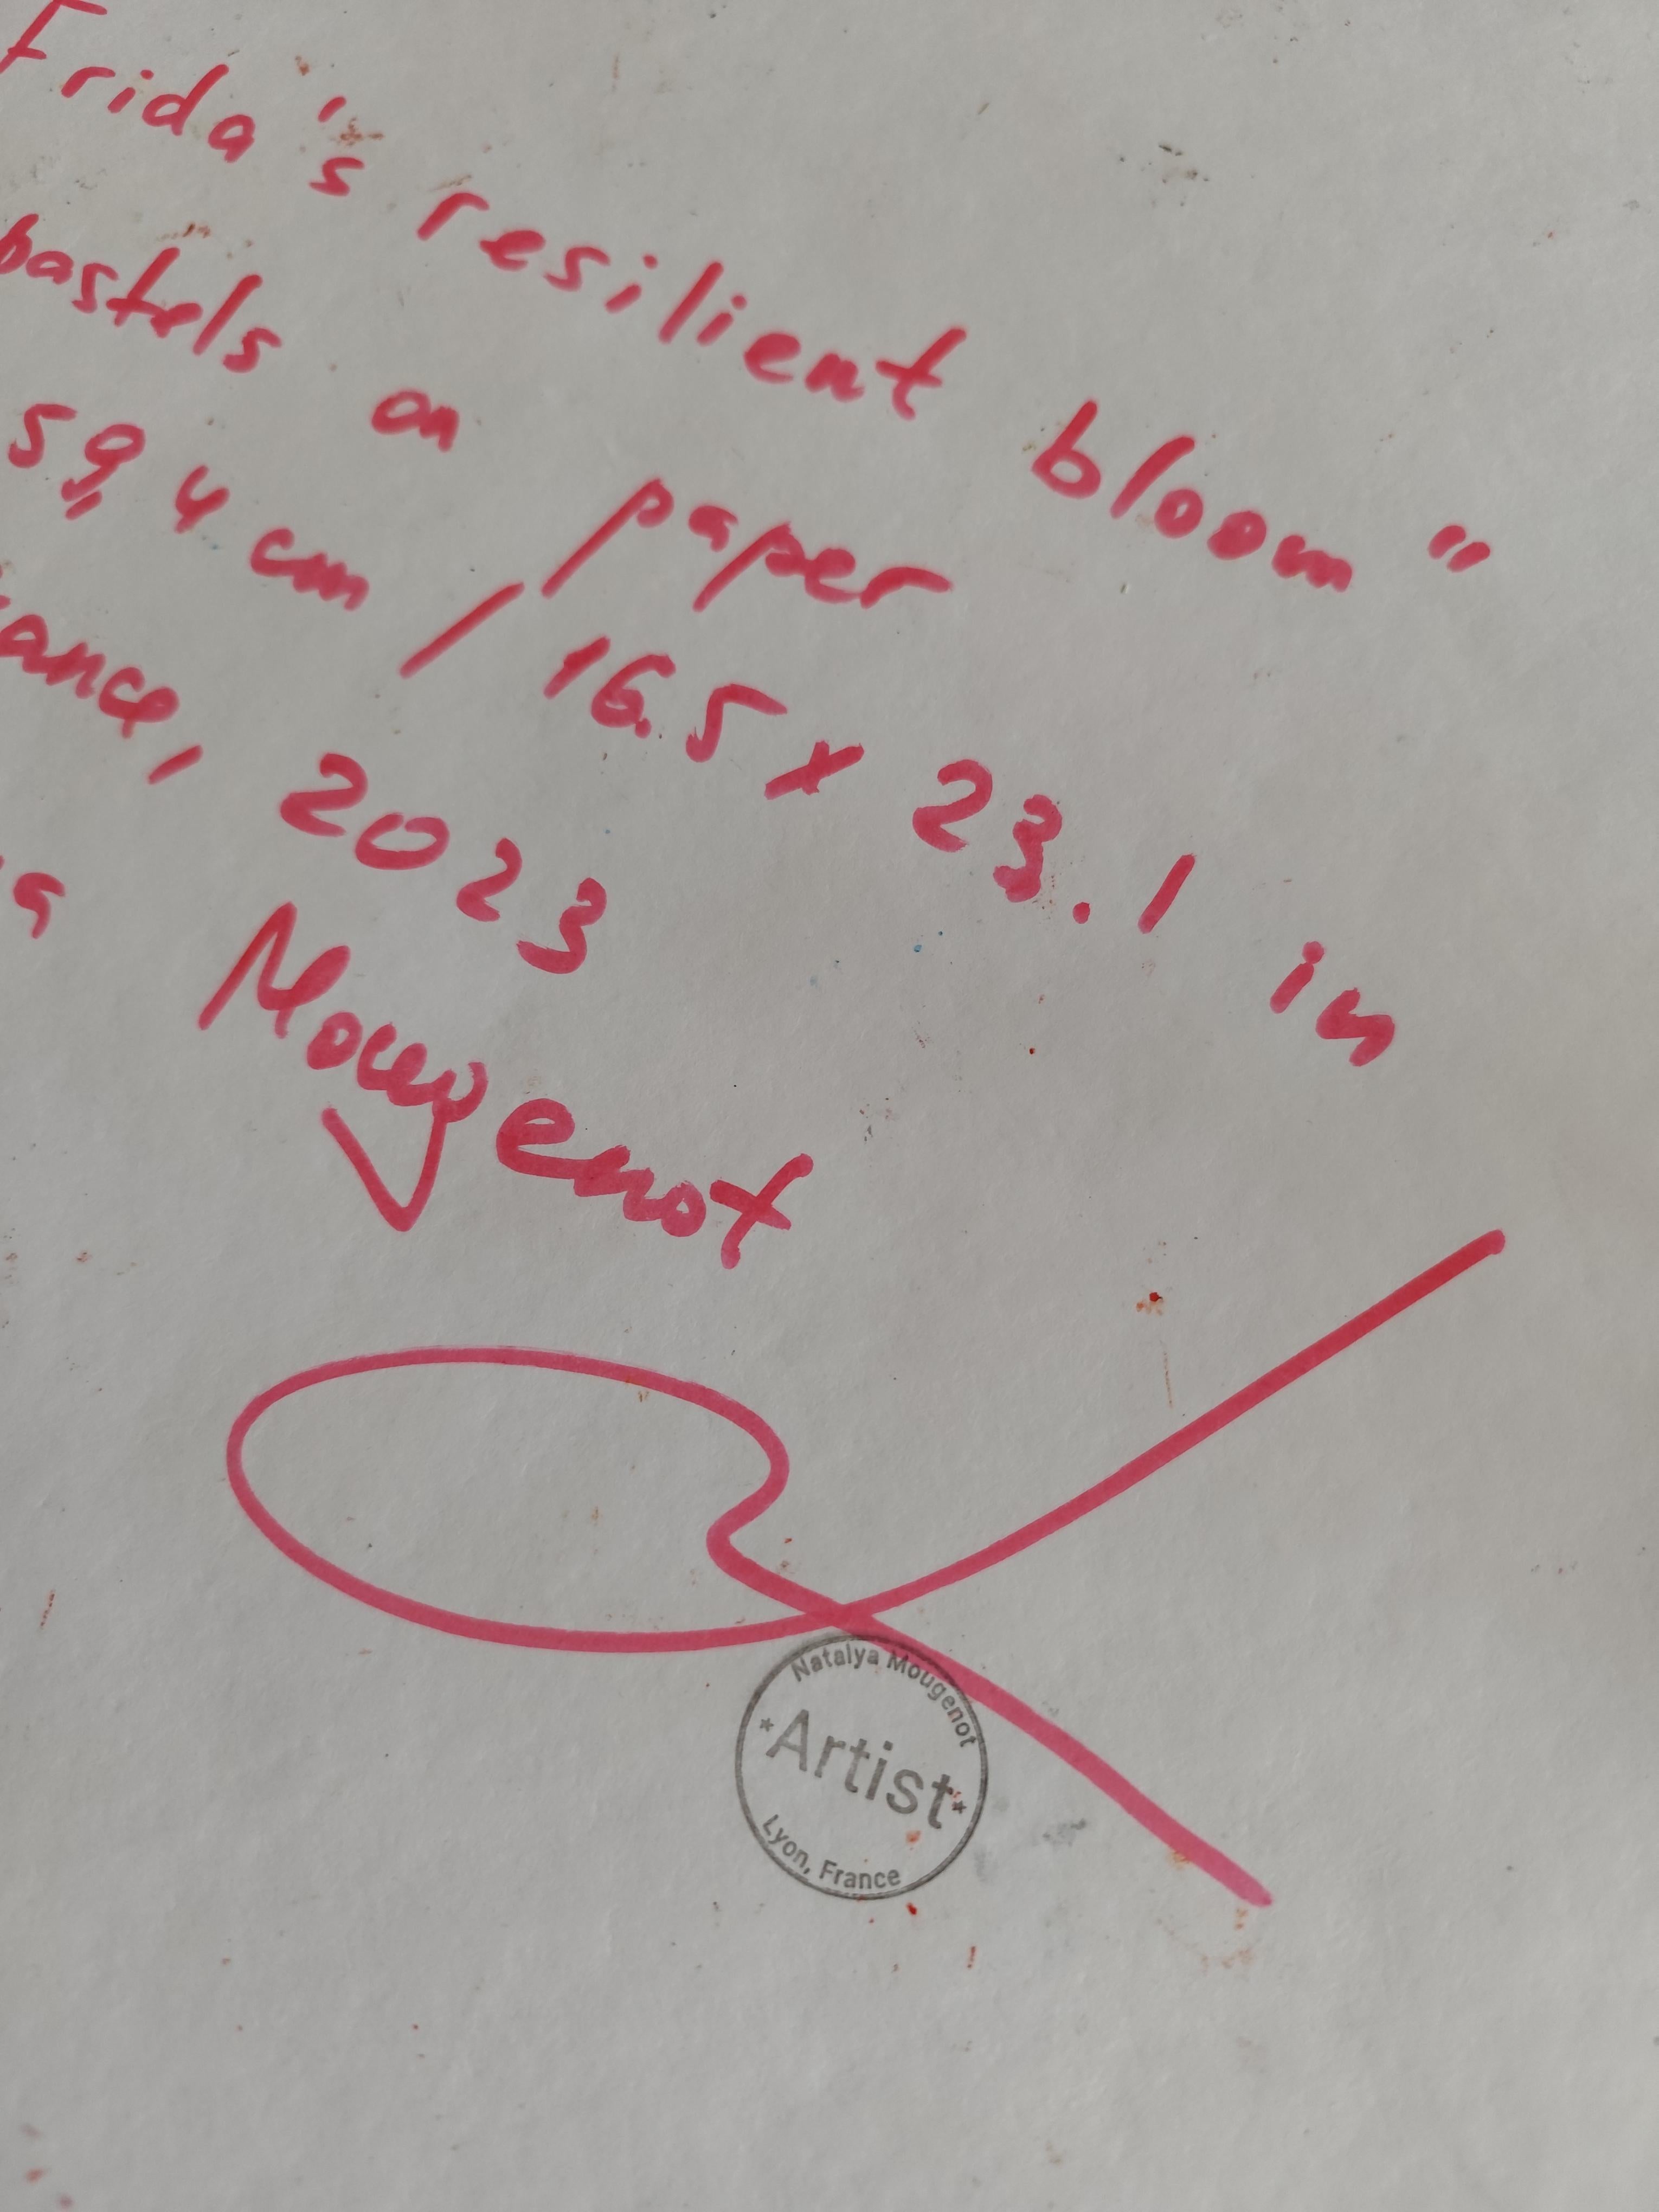 Frida's resilient bloom"
pastels on paper
59,4 cm / 16.5 x 23.1 in
ance, 2023
a Mougenot
Natalya Mougenot
*Artist*
Lyon, France